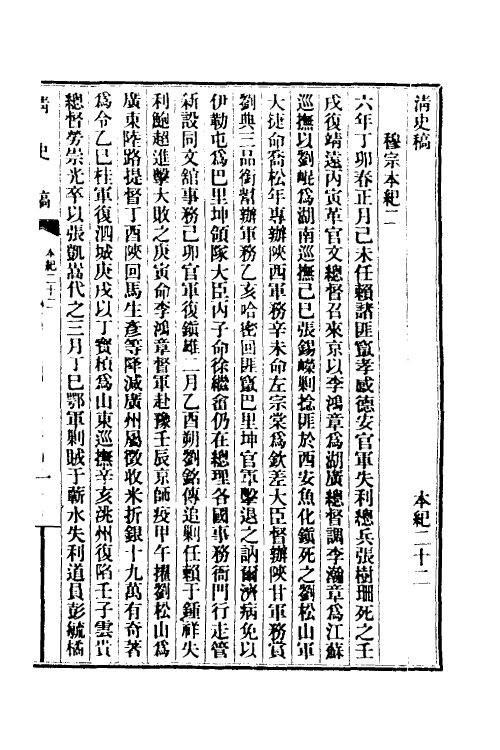 清史稿
本紀二十二
穆宗本紀二
六年丁卯春正月己未任賴諸匪竄孝感德安官軍失利總兵張樹珊死之壬
戌復靖遠丙寅革官文總督召來京以李鴻章爲湖廣總督調李瀚章爲江蘇
巡撫以劉崐爲湖南巡撫己巳張錫嶸剿捻匪於西安魚化鎭死之劉松山軍
大捷命喬松年專辦陝西軍務辛未命左宗棠爲欽差大臣督辦陝甘軍務賞
劉典三品銜幫辦軍務乙亥哈密回匪竄巴里坤官軍擊退之訥爾濟病免以
伊勒屯爲巴里坤領隊大臣丙子命徐繼畬仍在總理各國事務衙門行走管
新設同文館事務己卯官軍復鎭雄二月乙酉朔劉銘傳追剿任賴于鍾祥失
利鮑超進擊大敗之庚寅命李鴻章督軍赴豫壬辰京師疫甲午擢劉松山爲
廣東陸路提督丁酉陝回馬生彥等降減廣州屬徵收米折銀十九萬有奇著
爲令乙巳桂軍復泗城庚戌以丁寶楨爲山東巡撫辛亥洮州復陷壬子雲貴
總督勞崇光卒以張凱嵩代之三月丁巳鄂軍剿賊于蘄水失利道員彭毓橘
清史稿
本紀二十二
一